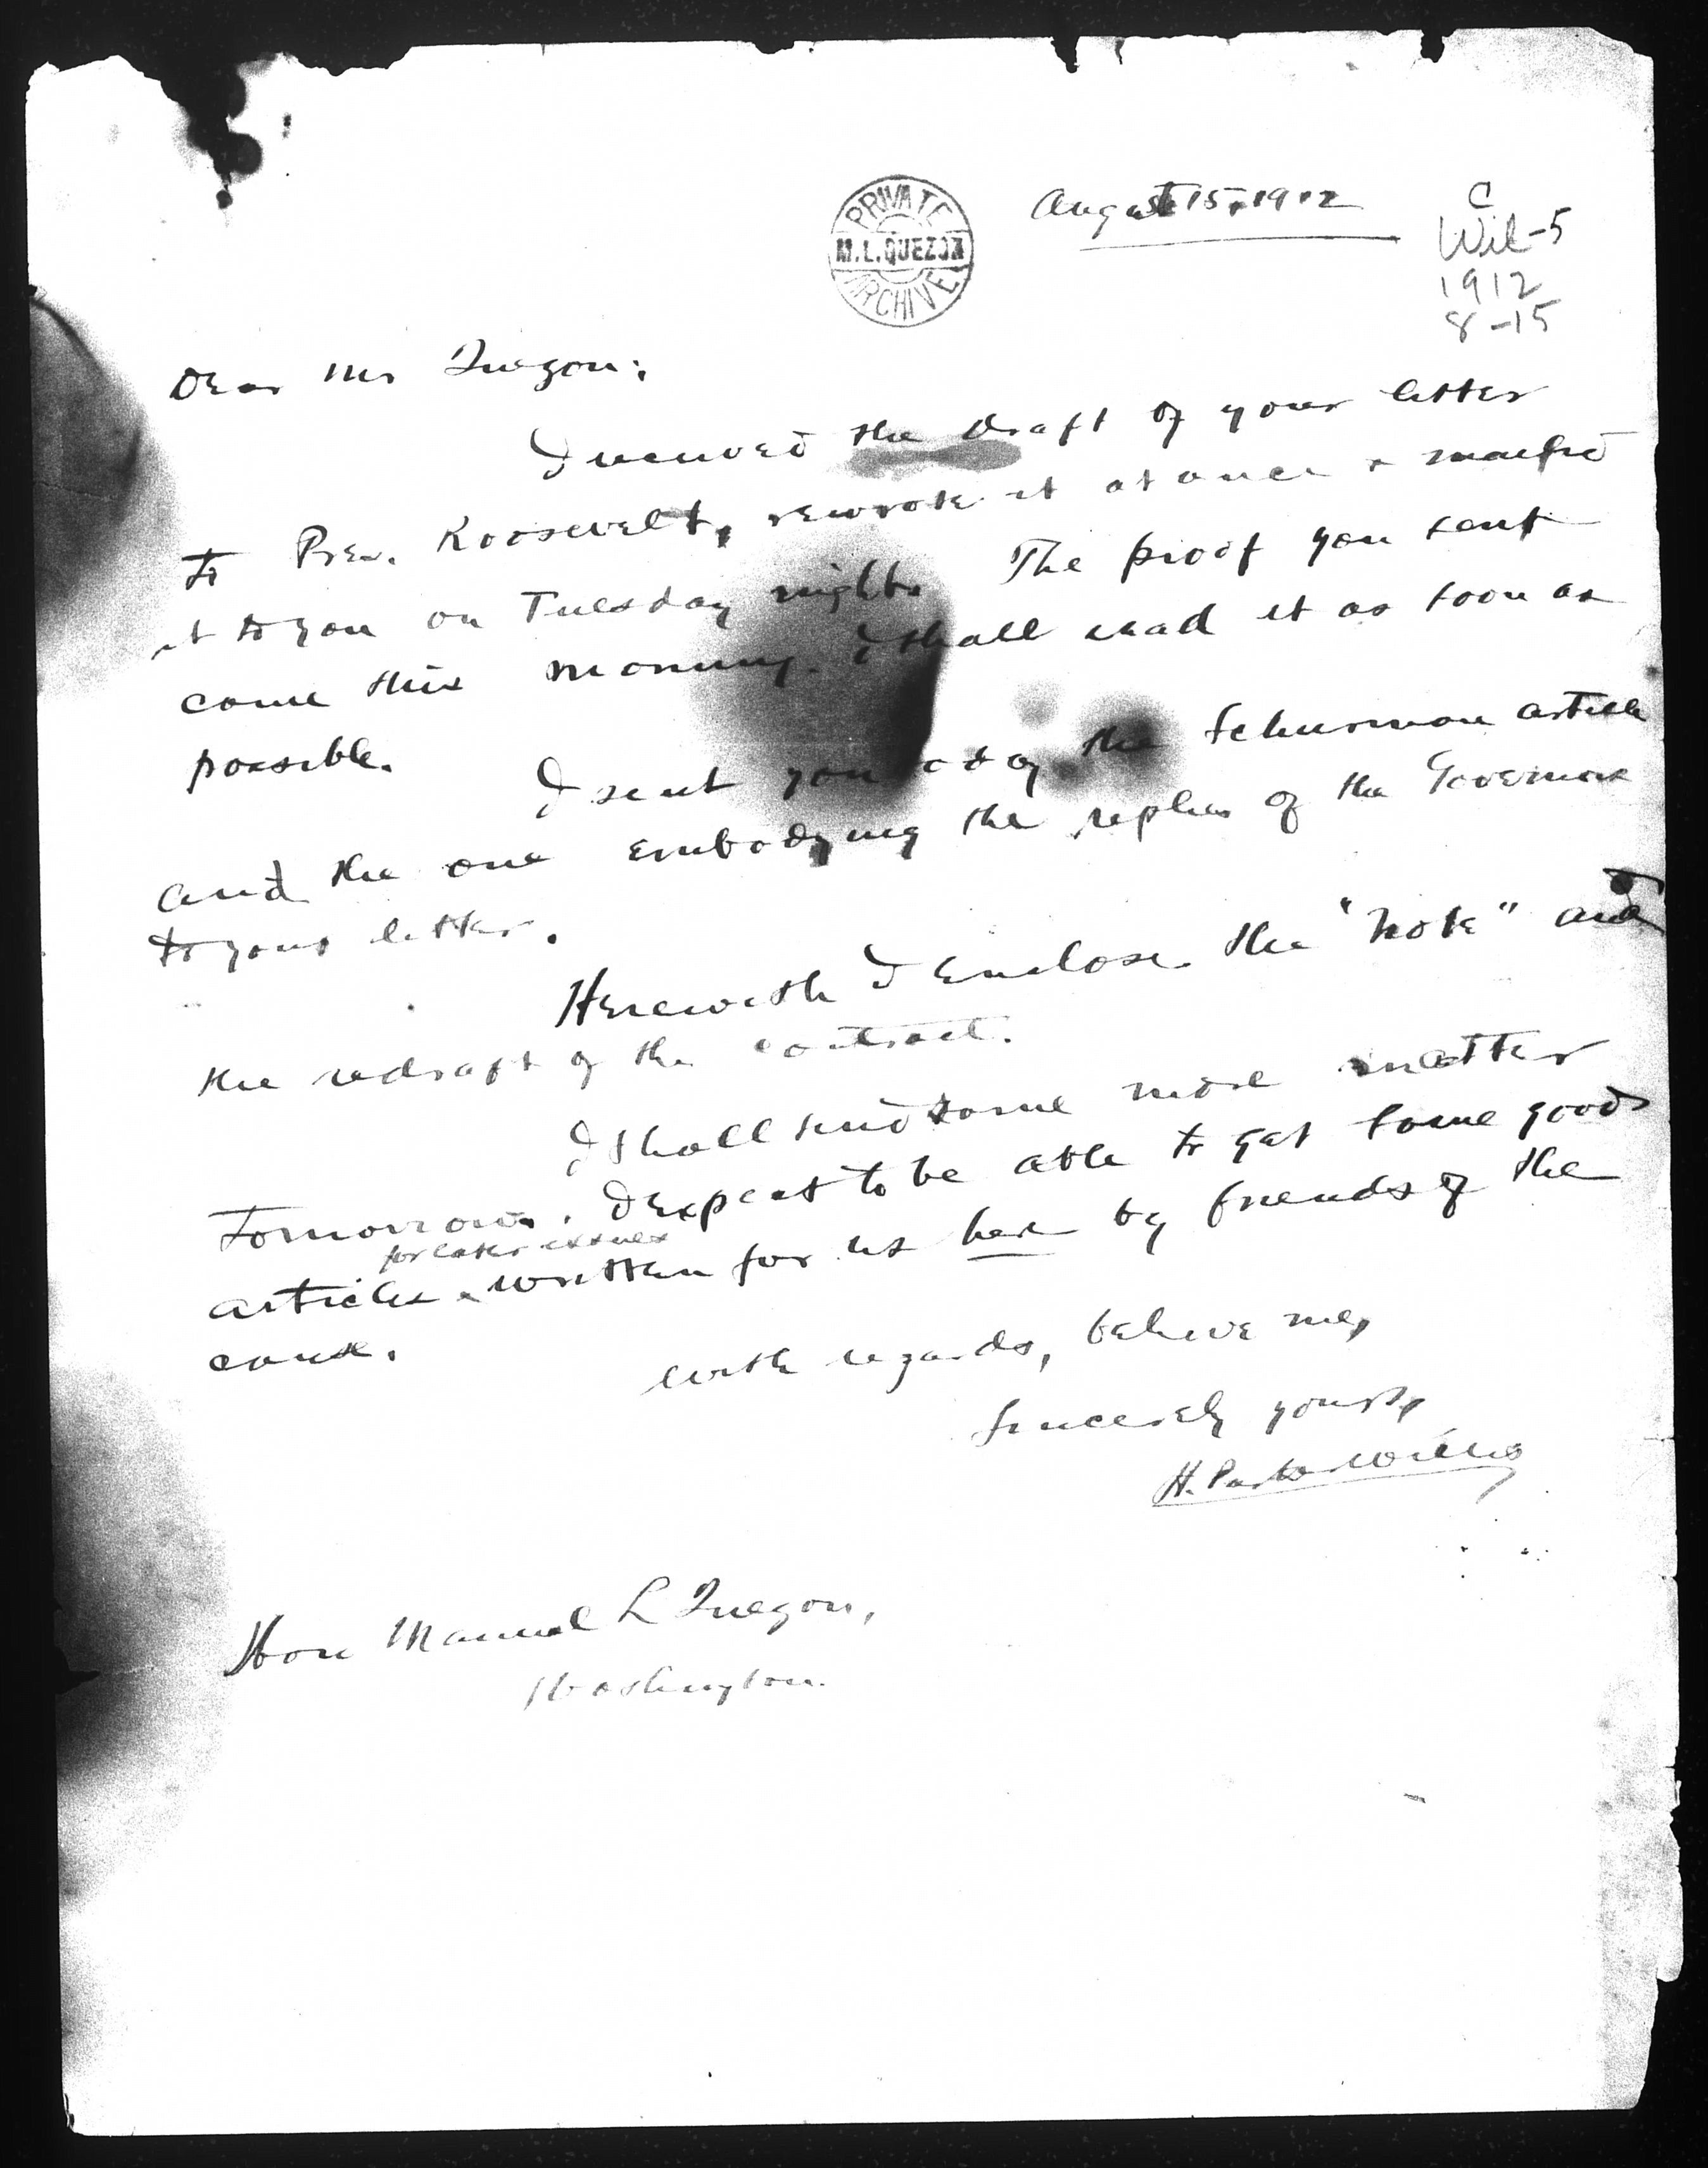 PRIVATE
M. L. QUEZON
ARCHIVE
August 15, 1912
C
Wil-5
1912
8-15
Dear Mr Quezon:
I received the draft of your letter
to Pres. Roosevelt, rewrote it at once & mailed
it to you on Tuesday night. The proof you sent
came this morning. I shall read it as soon as
possible.
I sent you today the Schurman article
and the one embodying the replies of the Governors
to your letter.
Herewith I enclose the "Note" and
the redraft of the contract.
I shall send some more matter
tomorrow. I expect to be able to get some good
for later issues
articles written for us here by friends of the
cause.
With regards, believe me,
Sincerely yours,
H. Parker Willis
Hon Manuel L Quezon,
Washington.